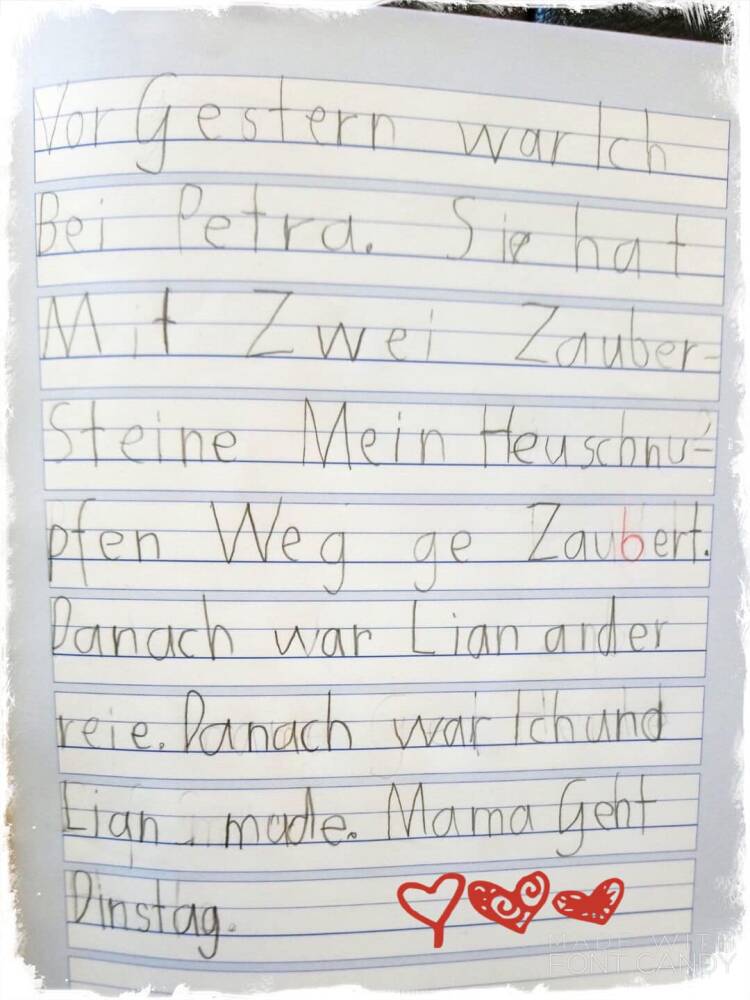 VorGestern war Ich
Bei Petra. Sie hat
Mit Zwei Zauber-
Steine Mein Heuschnu-
pfen Weg ge Zaubert.
Danach war Lian ander
reie. Danach war Ich und
Lian made. Mama Geht
Dinstag.
MADE WITH
FONT CANDY